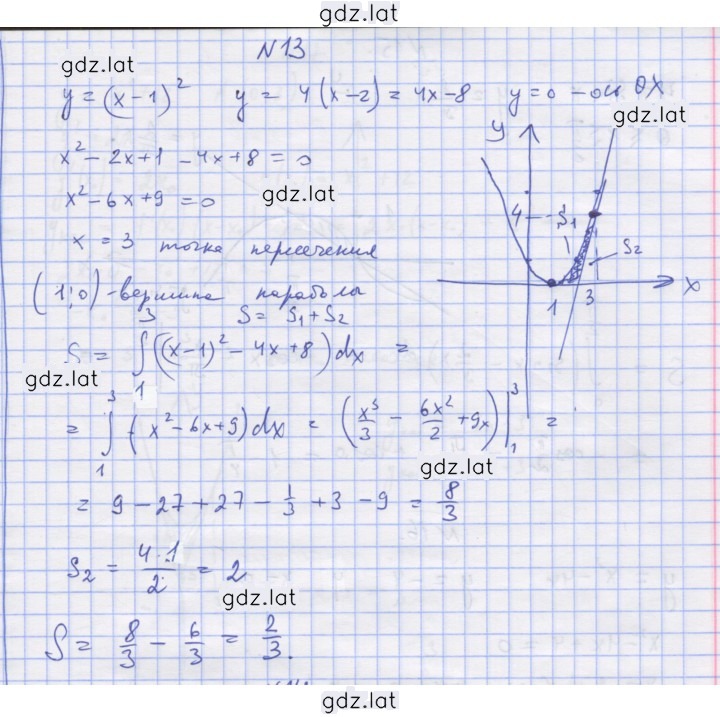 gdz.lat
N13
gdz.lat
y = (x-1)² y = 4(x-2) = 4x-8 y=0 - ось OX
gdz.lat
x² - 2x+1 - 4x+8 = 0
x² - 6x+9 = 0
gdz.lat
x = 3 точка пересечения
(1;0) - вершина параболы
S = S₁ + S₂
S = ∫₁³ ((x-1)² - 4x+8) dx =
gdz.lat
= ∫₁³ (x² - 6x+9) dx = (x³/3 - 6x²/2 + 9x) |₁³ =
gdz.lat
= 9 - 27 + 27 - 1/3 + 3 - 9 = 8/3
S₂ = 4·1/2 = 2
gdz.lat
S = 8/3 - 6/3 = 2/3.
y
4
S₁
S₂
x
1 3
gdz.lat